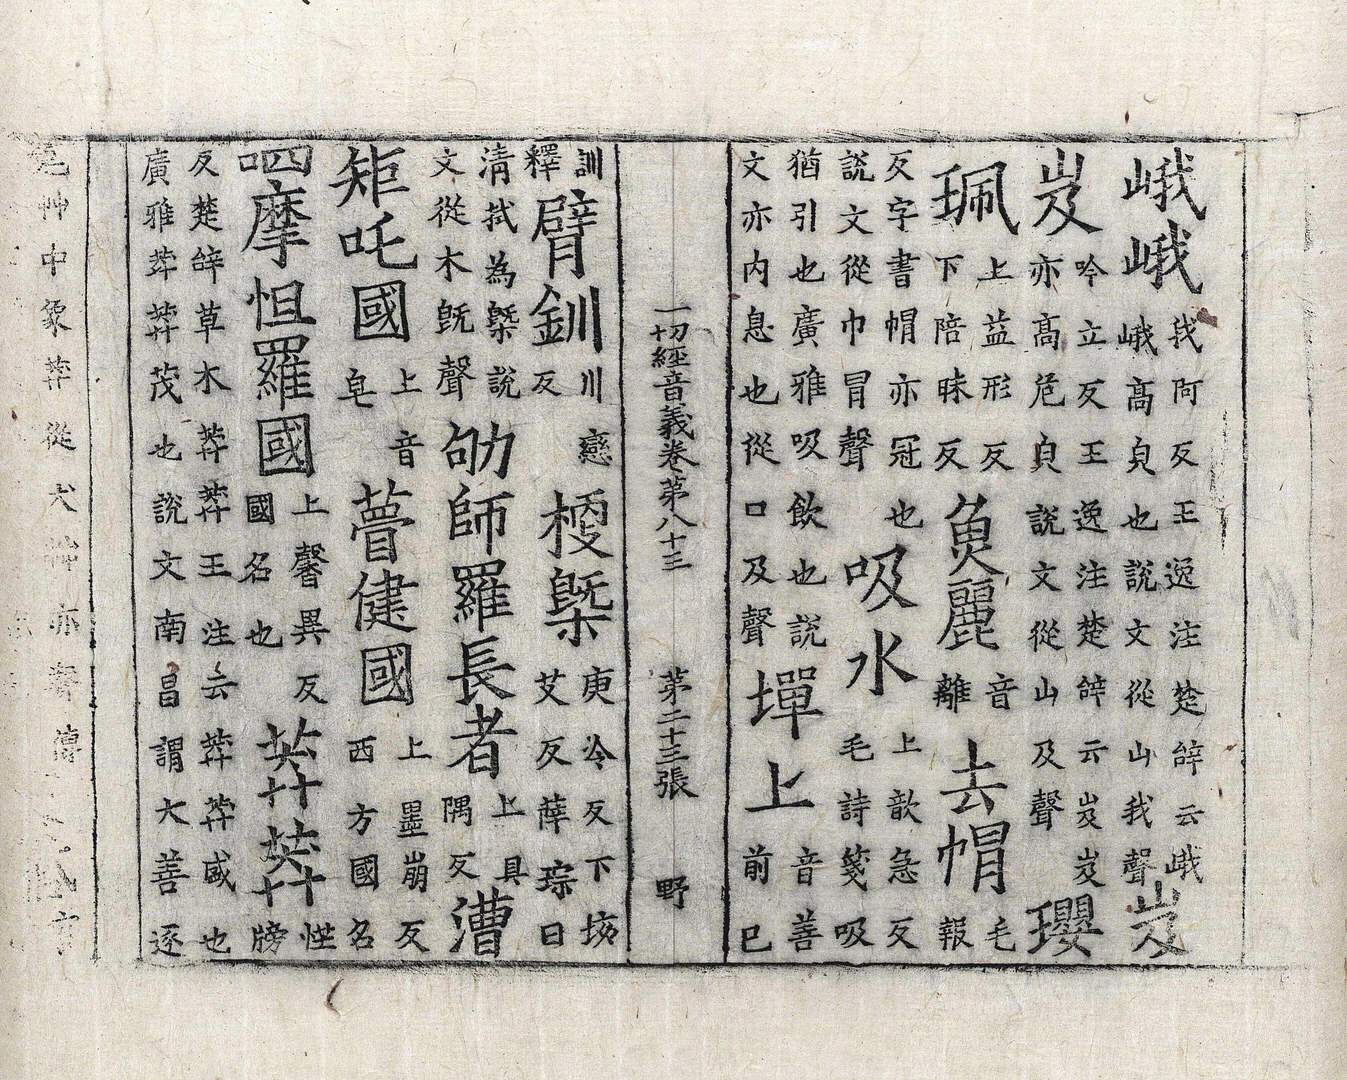 峨峨我阿反王逸注楚辭云峨峨高皃也說文從山我聲岌
岌吟立反王逸注楚辭云岌岌亦高危皃說文從山及聲瓔
珮上益形反下陪昧反魚麗音離去帽毛報
反字書帽亦冠也說文從巾冒聲吸水上歆急反毛詩箋吸
猶引也廣雅吸飲也說文亦内息也從口及聲墠上音善前巳
一切經音義卷第八十三 第二十三張 野
訓釋臂釧川戀反梗槩庚冷反下垓艾反薛琮曰
清拭為槩說文從木既聲劬師羅長者上具隅反漕
矩吒國上音皂瞢健國上墨崩反西方國名
呬摩怛羅國上馨異反國名也莽莽恾牓
反楚辭草木莽莽王注云莽莽盛也廣雅莽莽茂也說文南昌謂大善逐
艸中象莽從犬茻亦聲傳